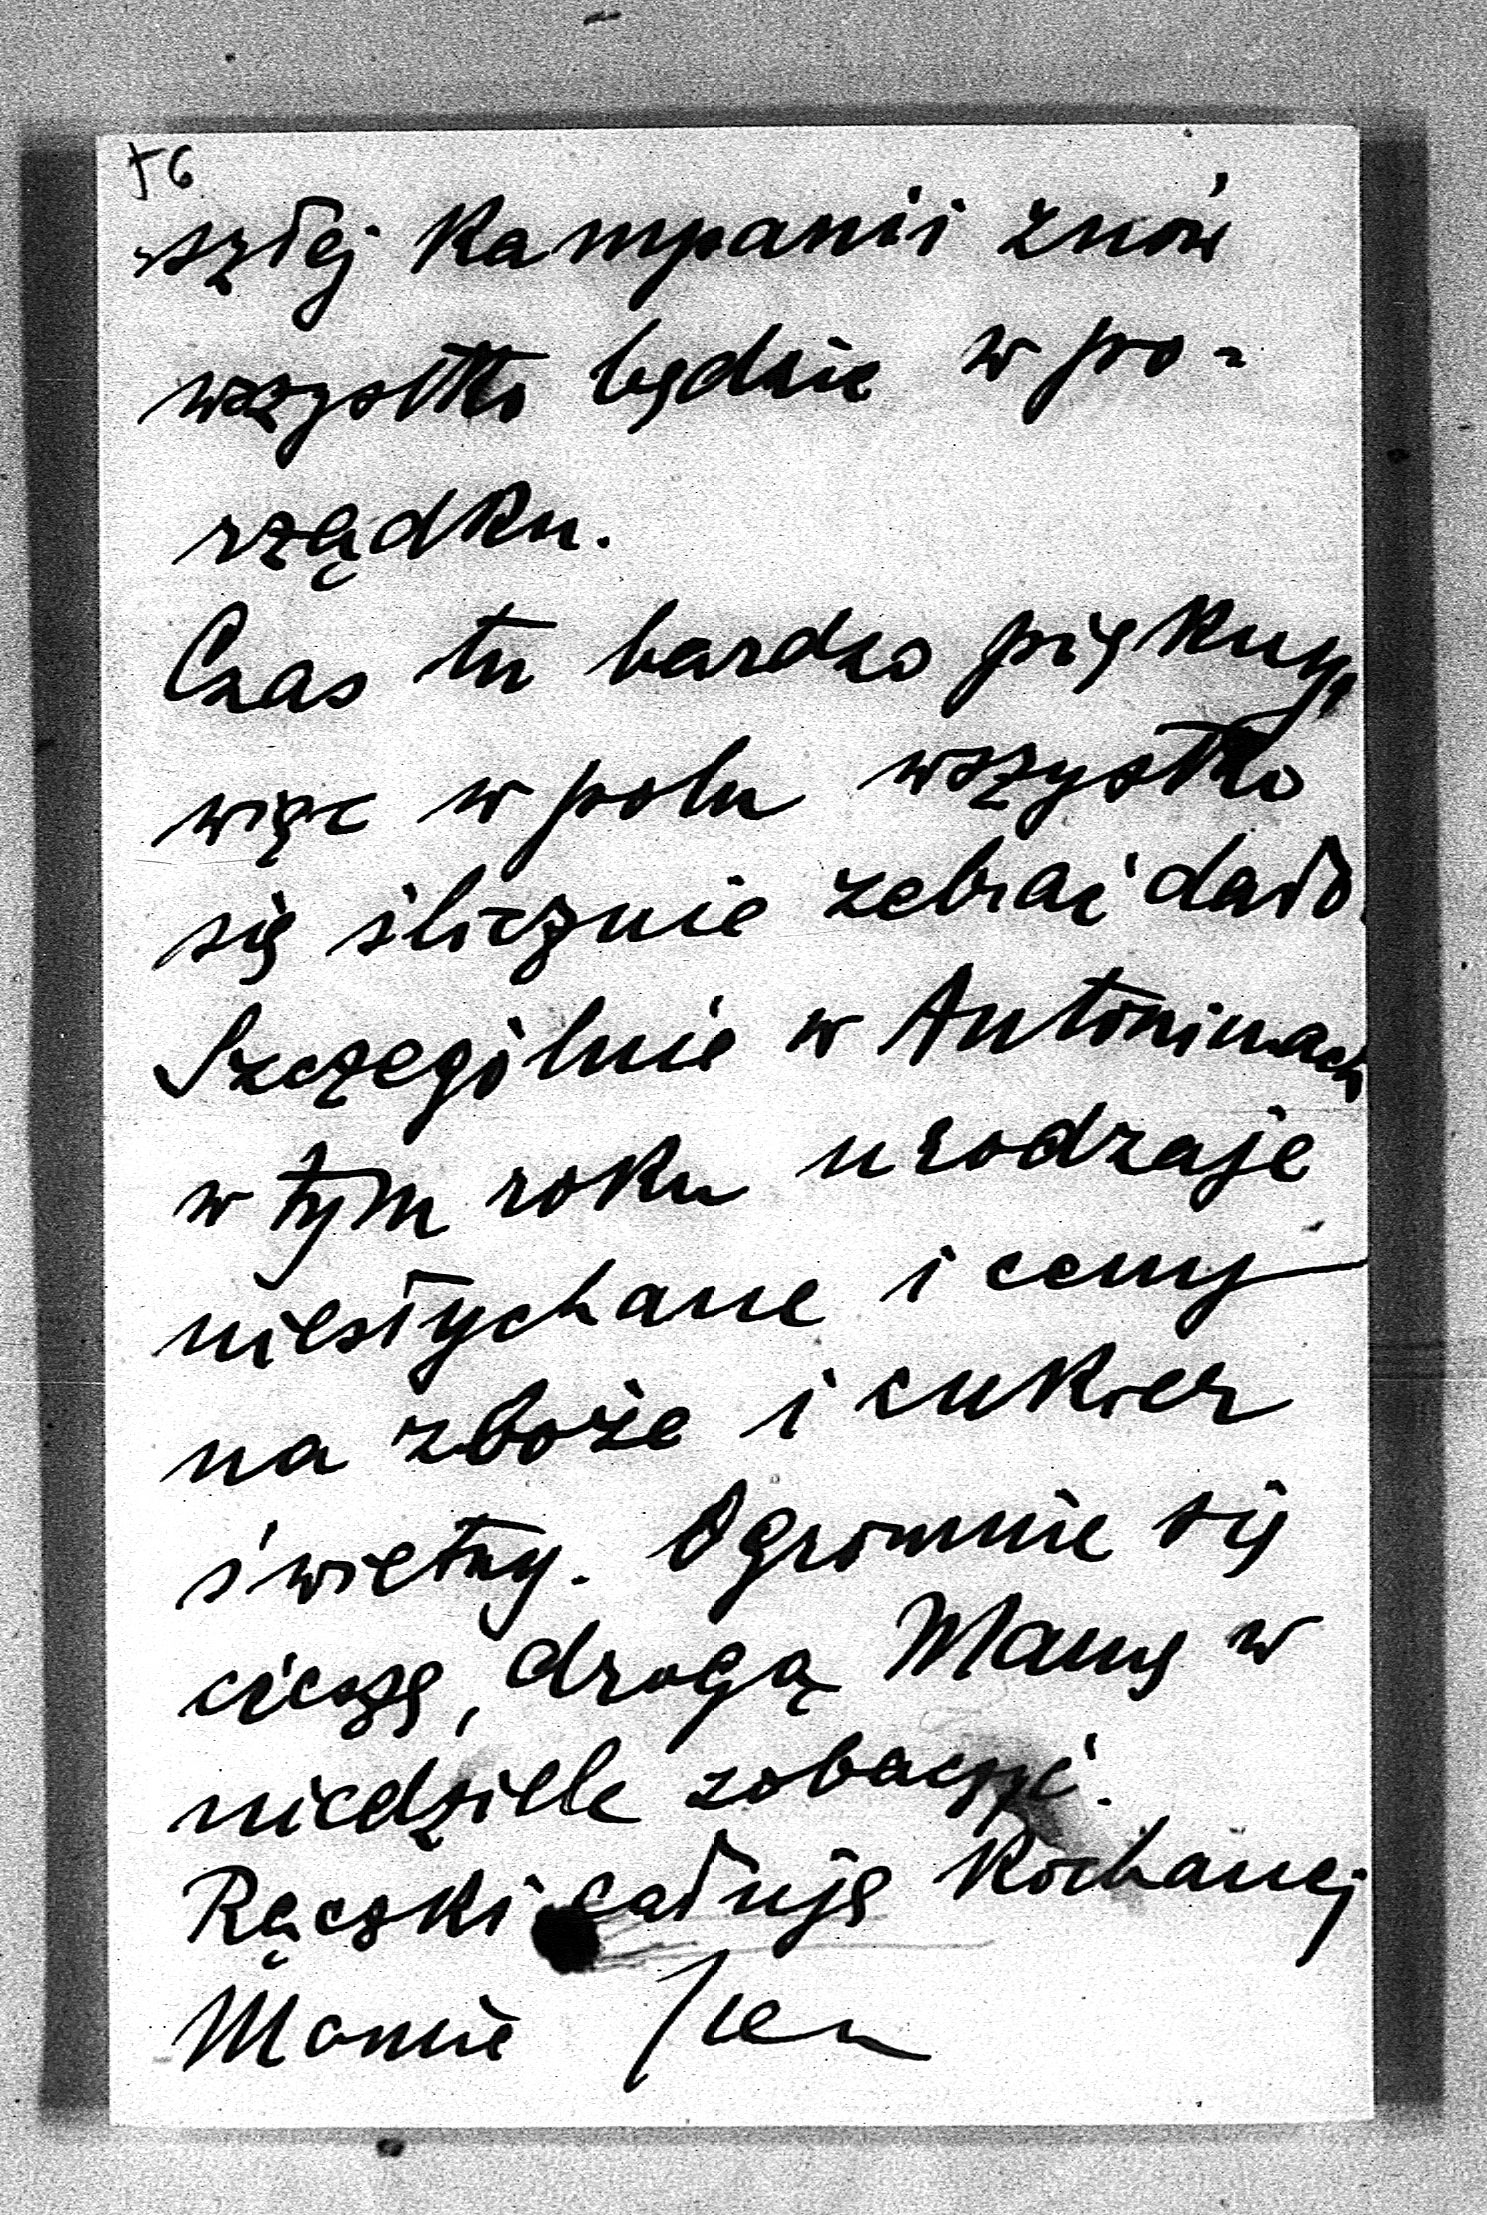 56
szłej kampanii znów
wszystko będzie w po-
rządku.
Czas tu bardzo piękny,
więc w polu wszystko
się ślicznie zebrać dało.
Szczególnie w Antoninach
w tym roku urodzaje
niesłychane i ceny
na zboże i cukier
świetny. Ogromnie się
cieszę, drogą Mamę w
niedziele zobaczyć.
Rączki całuję kochanej
Mamie